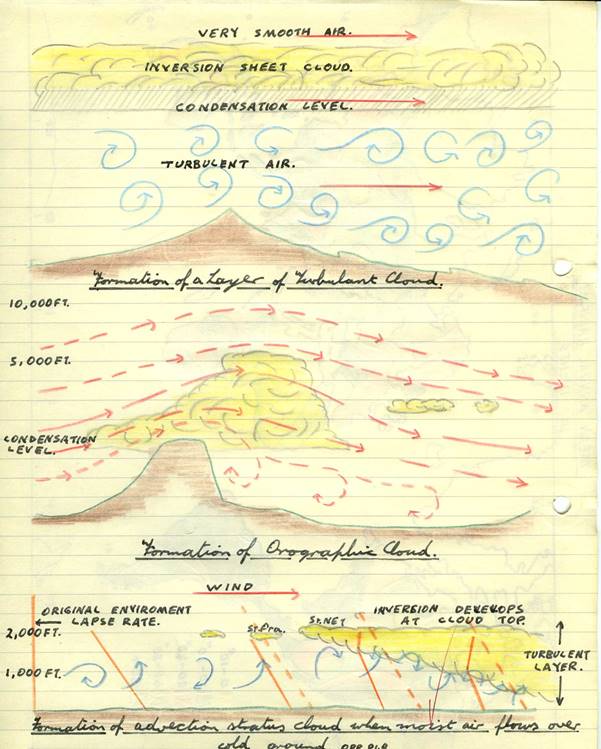 VERY SMOOTH AIR.
INVERSION SHEET CLOUD.
CONDENSATION LEVEL.
TURBULENT AIR.
Formation of a Layer of Turbulant Cloud.
10,000FT.
5,000FT.
CONDENSATION
LEVEL.
Formation of Orographic Cloud.
WIND
ORIGINAL ENVIROMENT
LAPSE RATE.
INVERSION DEVELOPS
AT CLOUD TOP.
2,000FT.
St.Fra.
St.NET
TURBULENT
LAYER.
1,000FT.
Formation of advection stratus cloud when moist air flows over
cold ground